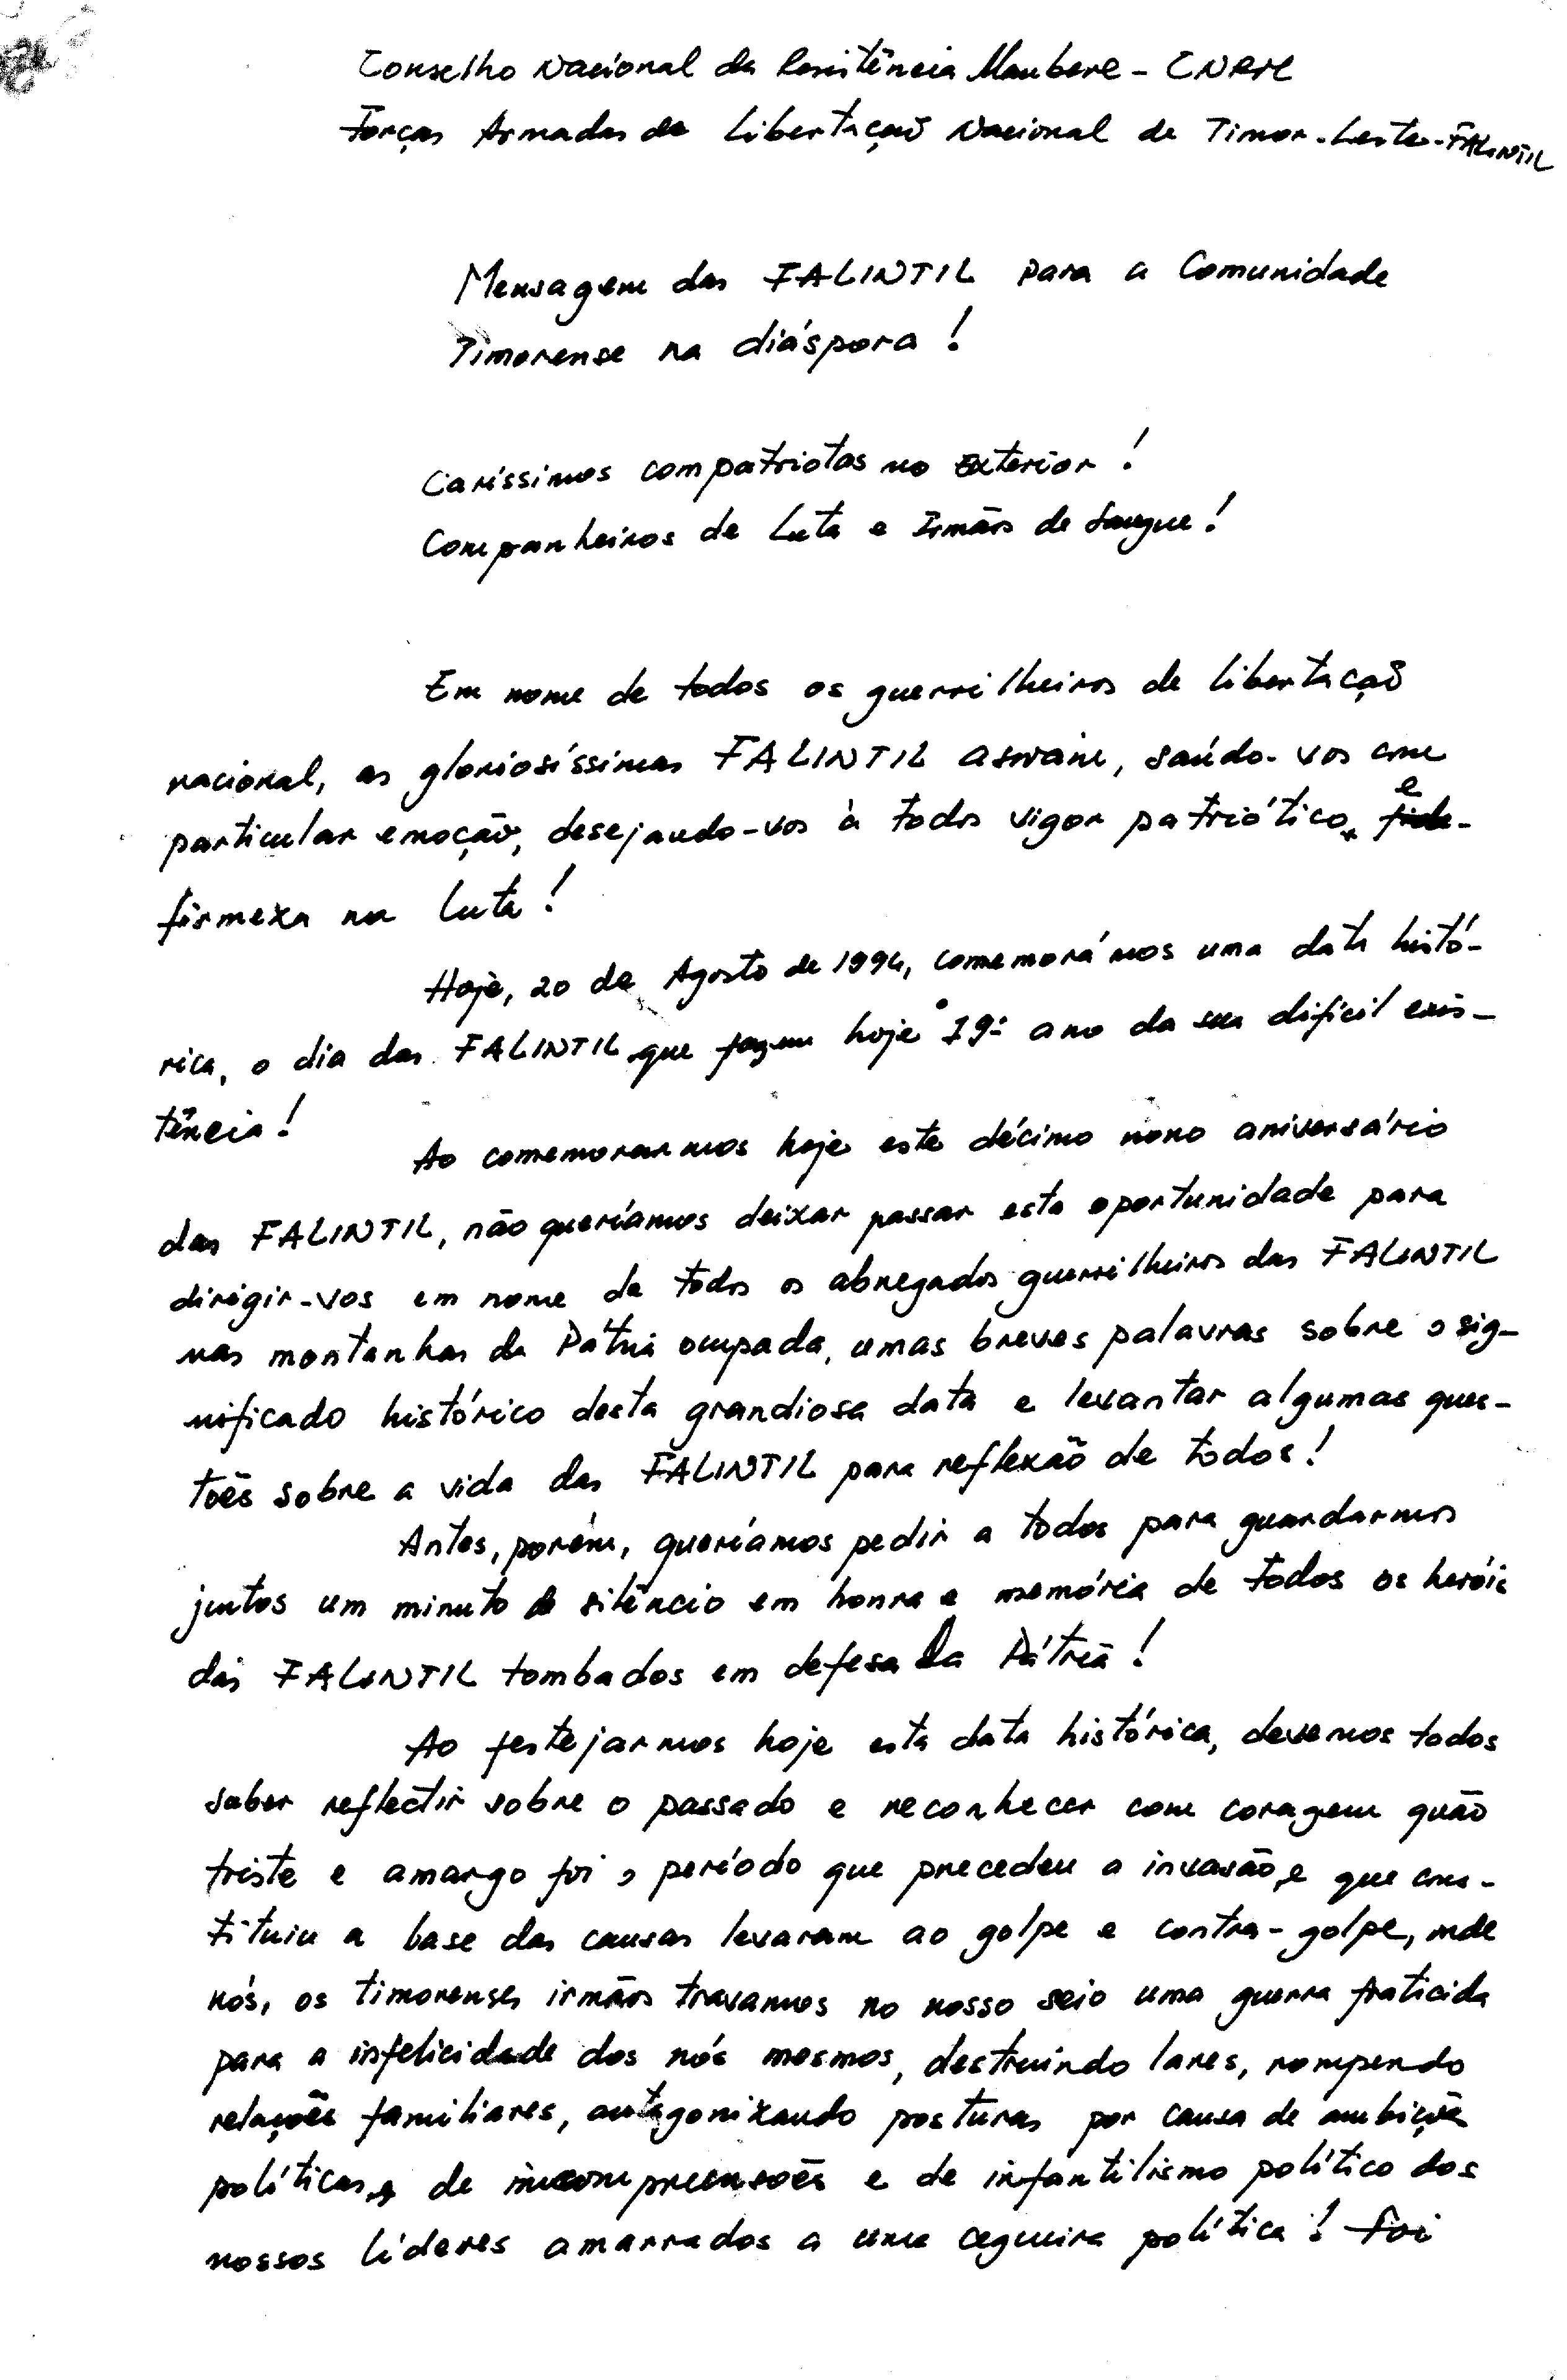 Conselho Nacional da Resistência Maubere - CNRM
Forças Armadas de Libertação Nacional de Timor-Leste-FALINTIL
Mensagem das FALINTIL para a Comunidade
Timorense na diáspora!
Caríssimos compatriotas no Exterior!
Companheiros de Luta e Irmãos de Sangue!
Em nome de todos os guerrilheiros de libertação
nacional, as gloriosíssimas FALINTIL aswain, saúdo-vos com
particular emoção, desejando-vos à todos vigor patriótico e
firmeza na luta!
Hoje, 20 de Agosto de 1994, comemorámos uma data histó-
rica, o dia das FALINTIL que fazem hoje o 19º ano da sua difícil exis-
tência!
Ao comemorarmos hoje este décimo nono aniversário
das FALINTIL, não queríamos deixar passar esta oportunidade para
dirigir-vos em nome de todos os abnegados guerrilheiros das FALINTIL
nas montanhas da Pátria ocupada, umas breves palavras sobre o sig-
nificado histórico desta grandiosa data e levantar algumas ques-
tões sobre a vida das FALINTIL para reflexão de todos!
Antes, porém, queríamos pedir a todos para guardarmos
juntos um minuto de silêncio em honra e memória de todos os heróis
das FALINTIL tombados em defesa da Pátria!
Ao festejarmos hoje esta data histórica, devemos todos
saber reflectir sobre o passado e reconhecer com coragem quão
triste e amargo foi o período que precedeu a invasão, e que cons-
tituiu a base das causas levaram ao golpe e contra-golpe, onde
nós, os timorenses irmãos travamos no nosso seio uma guerra fraticida
para a infelicidade dos nós mesmos, destruindo lares, rompendo
relações familiares, antagonizando posturas por causa de ambições
políticas, de incompreensões e de infantilismo político dos
nossos líderes amarrados a uma cegueira política! Foi